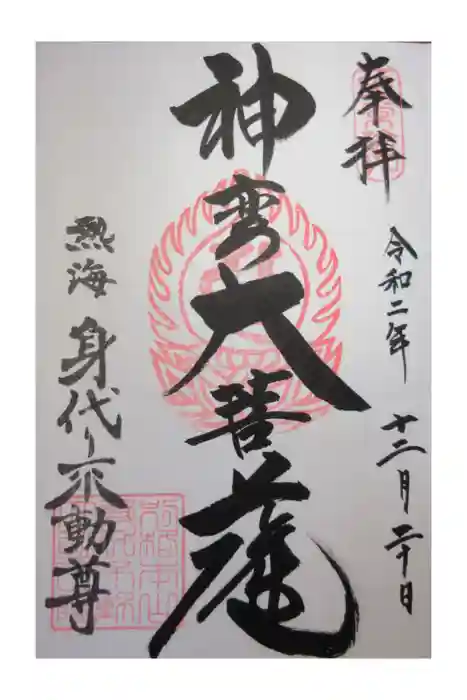 奉拝
令和二年 十二月 二十日
神変大菩薩
熱海 身代り不動尊